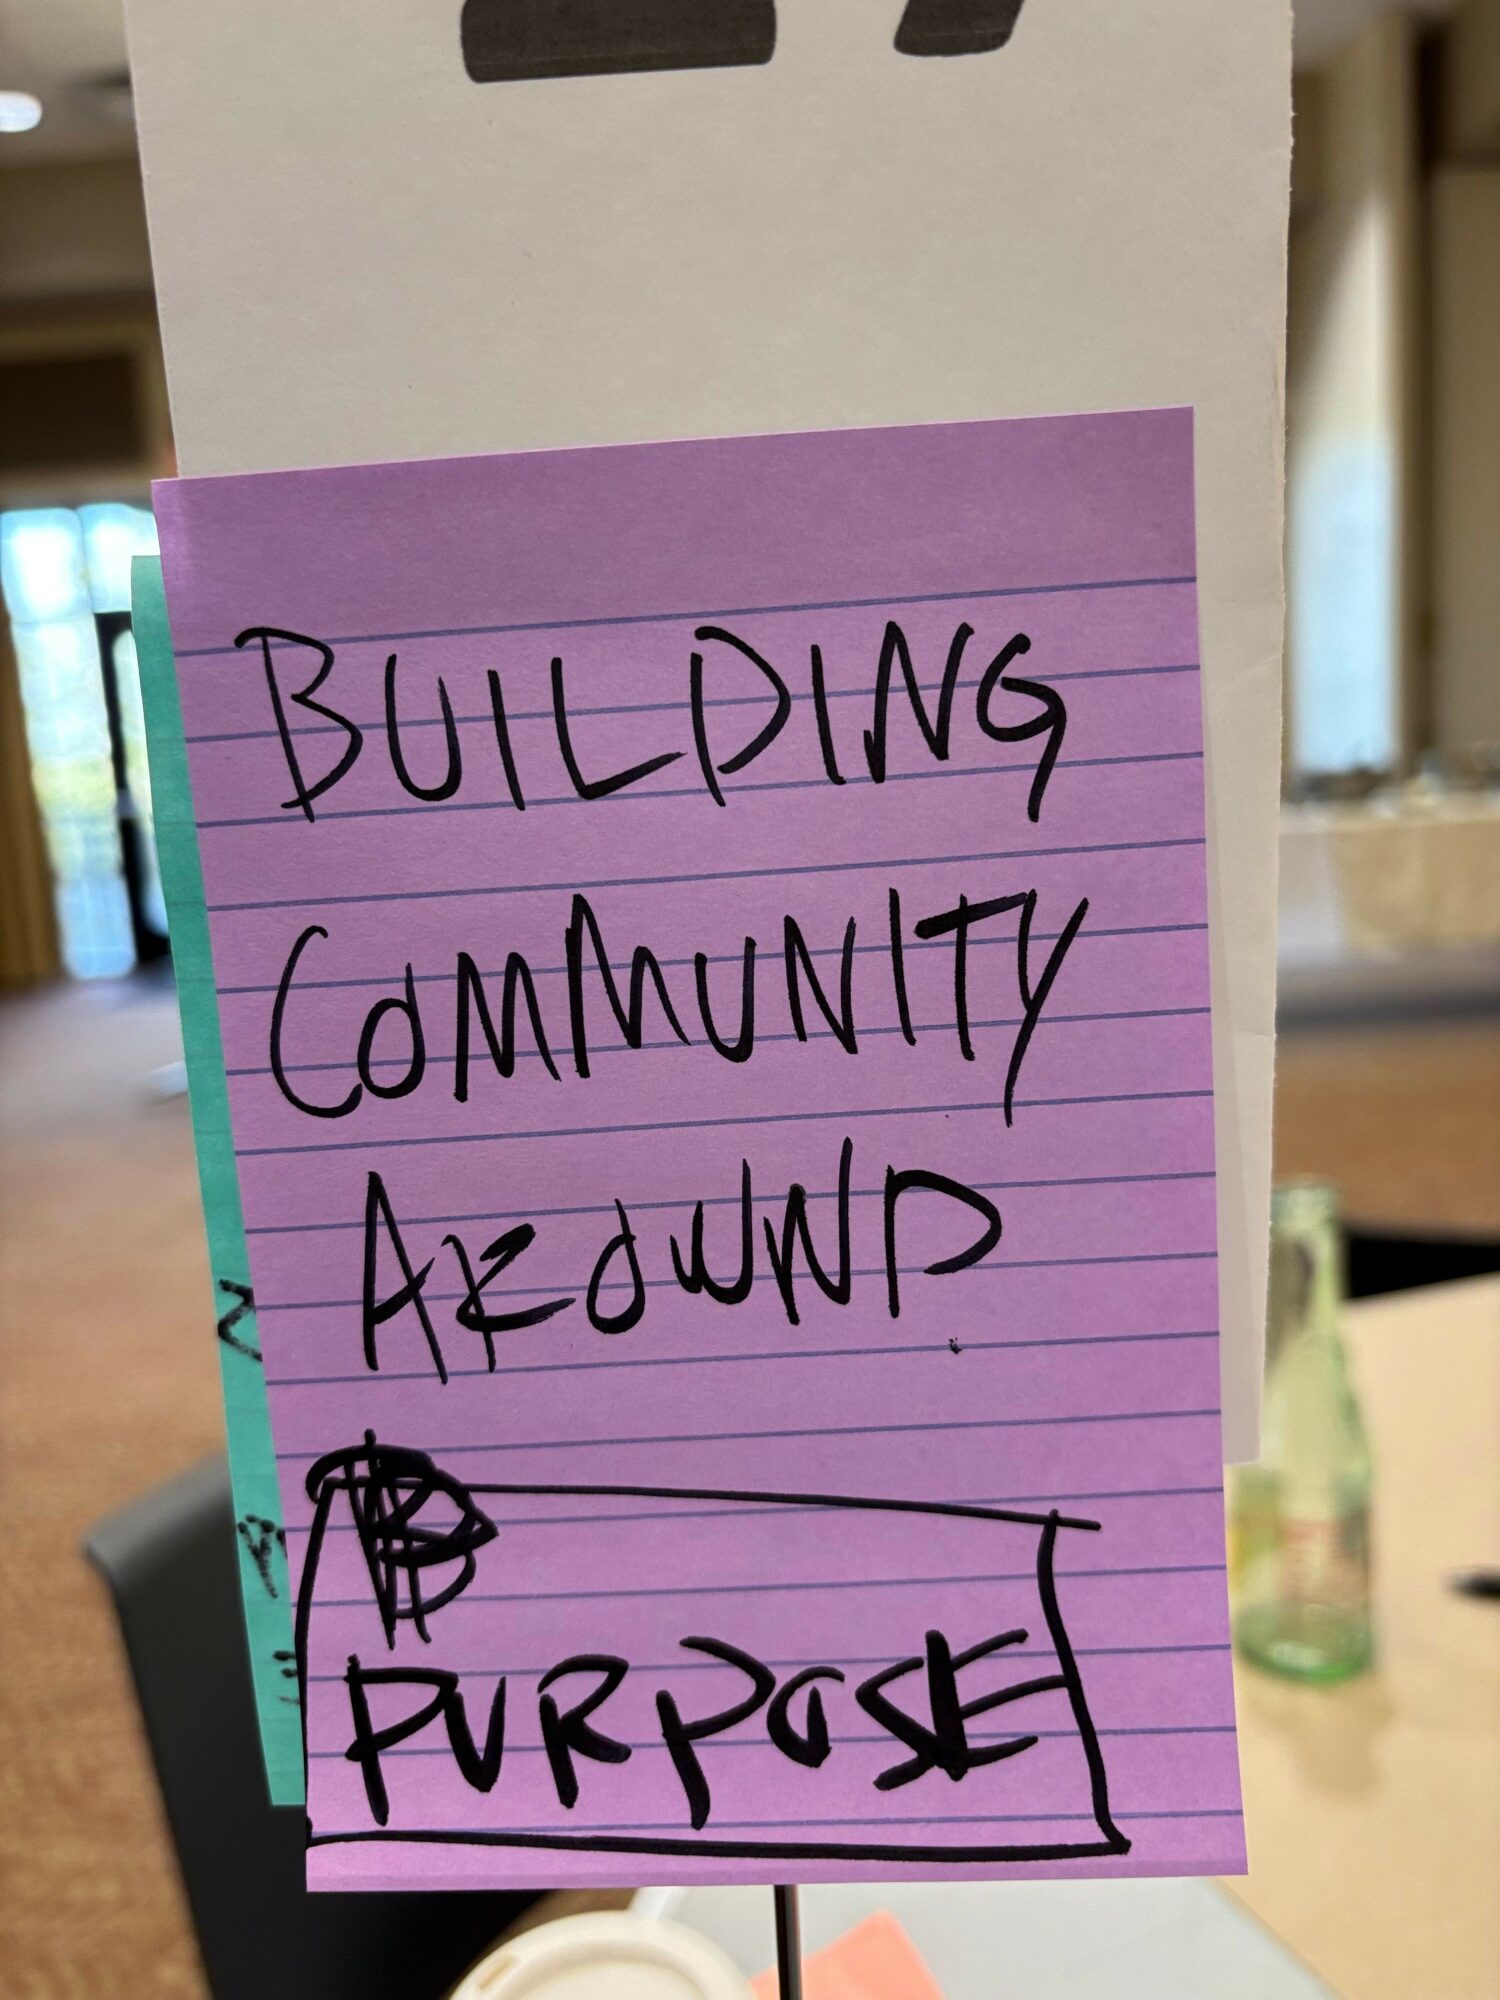 BUILDING
COMMUNITY
AROUND
PURPOSE